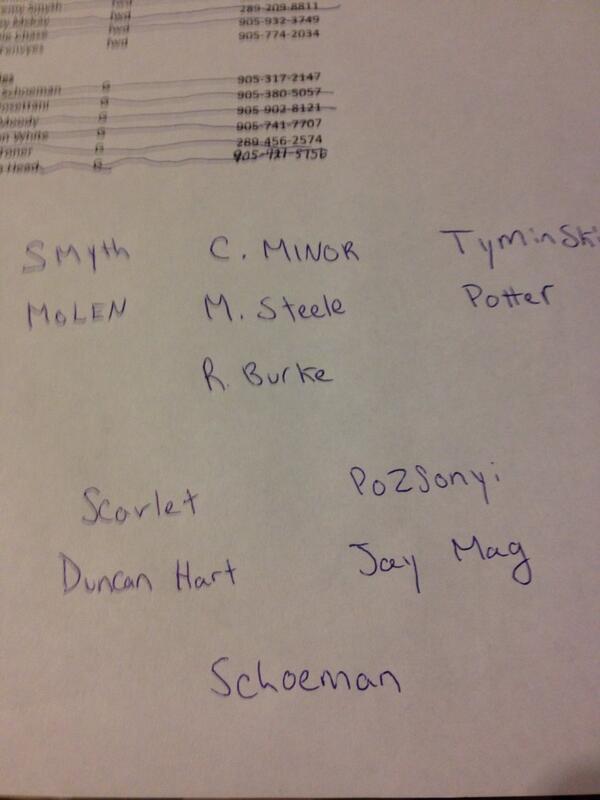 Smyth fwd 289-209-8811
fwd 905-932-3749
fwd 905-774-2034
fwd
905-317-2147
Schoeman G 905-380-5057
G 905-902-8121
Moody G 905-741-7707
White G 289-456-2574
G 905-427-5756
Head G
SMyth C. MINOR TyminSki
MOLEN M. Steele Potter
R. Burke
Scarlet POZSonyi
Duncan Hart Jay Mag
Schoeman